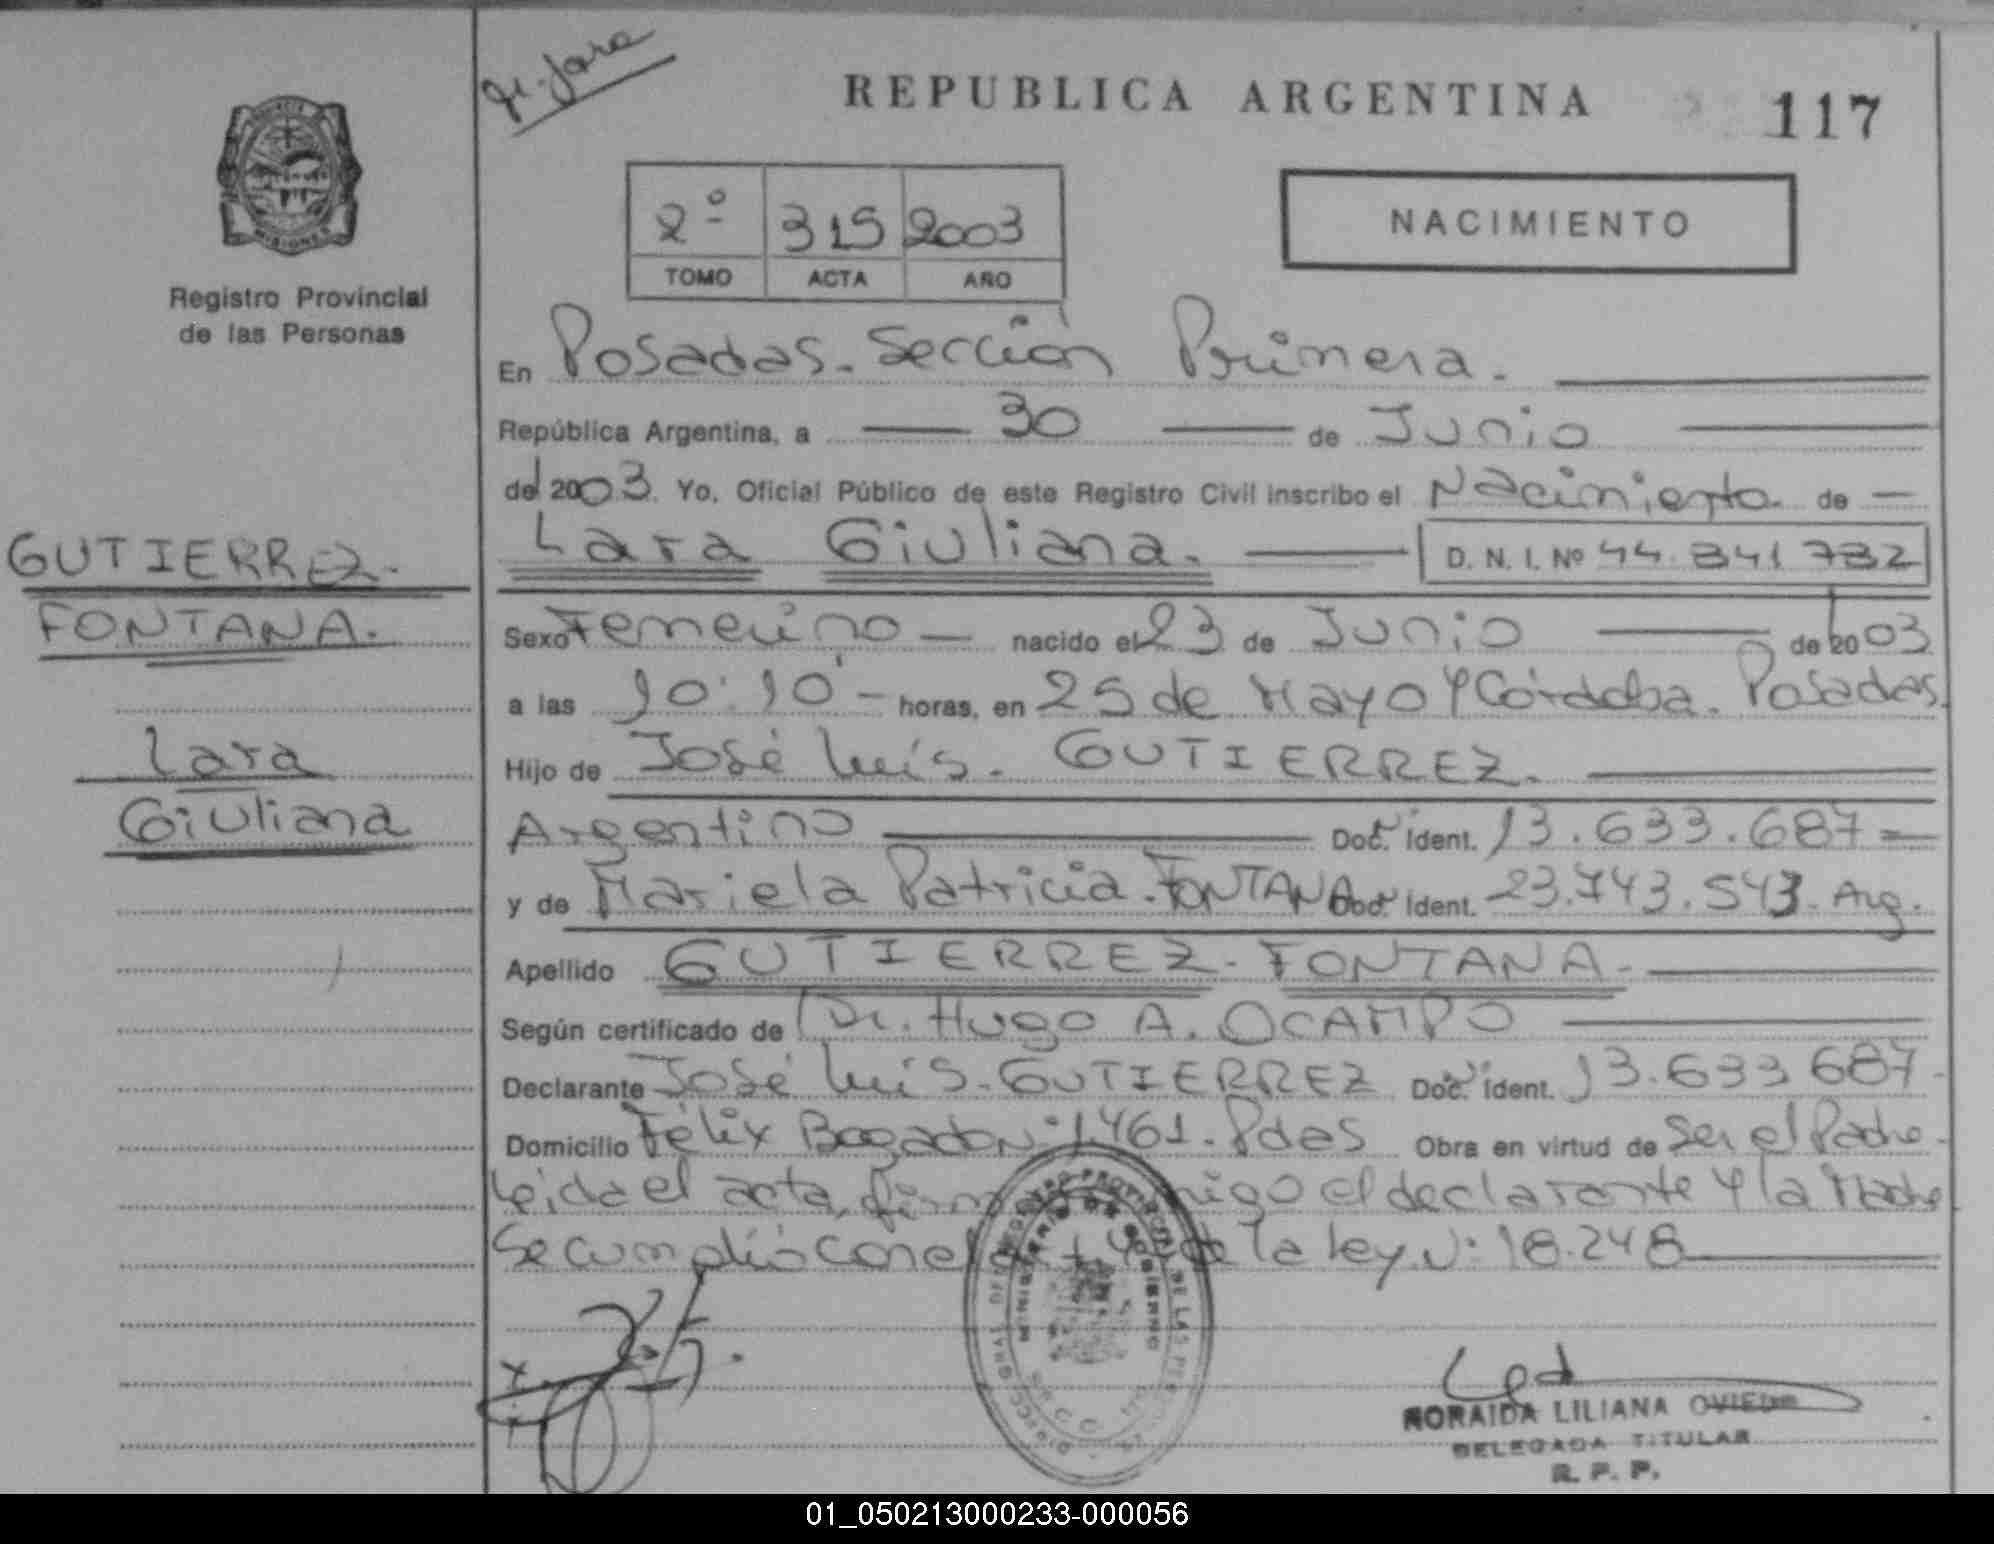 REPUBLICA ARGENTINA
117
2º 315 2003
TOMO ACTA AÑO
NACIMIENTO
MISIONES
Registro Provincial
de las Personas
GUTIERREZ.
FONTANA.
Lara
Giuliana
En Posadas. Sección Primera.
República Argentina, a 30 de Junio
del 2003. Yo, Oficial Público de este Registro Civil inscribo el Nacimiento de
Lara Giuliana. D. N. I. Nº 44.841.732
Sexo Femenino nacido el 23 de Junio de 2003
a las 10:10 horas, en 25 de Mayo y Córdoba. Posadas.
Hijo de José Luis. GUTIERREZ.
Argentino Doc. Ident. 13.633.687
y de Mariela Patricia. FONTANA Doc. Ident. 23.743.543. Arg.
Apellido GUTIERREZ. FONTANA.
Según certificado de Dr. Hugo A. OCAMPO
Declarante José Luis. GUTIERREZ Doc. Ident. 13.633.687
Domicilio Félix Bogado Nº 1461. Pdas Obra en virtud de Ser el Padre.
Leída el acta, el declarante y la Madre
Se cumplió con el de la ley. Nº 18.248
NORAIDA LILIANA OVIEDO
DELEGADA TITULAR
R. P. P.
01_050213000233-000056